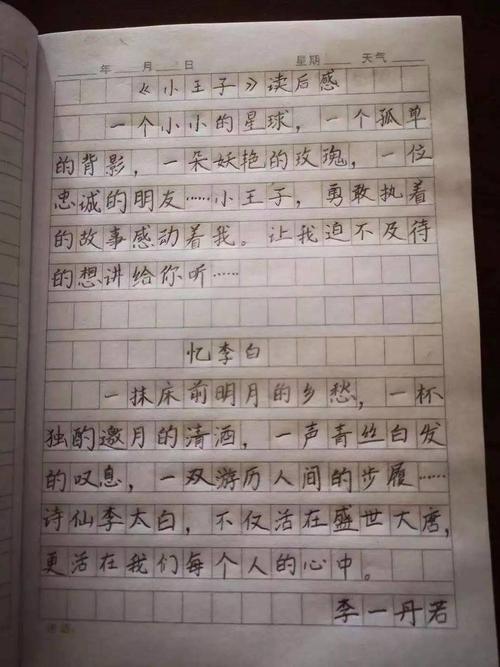 年 月 日 星期 天气
《小王子》读后感
一个小小的星球，一个孤单
的背影，一朵妖艳的玫瑰，一位
忠诚的朋友……小王子，勇敢执着
的故事感动着我。让我迫不及待
的想讲给你听……
忆李白
一抹床前明月的乡愁，一杯
独酌邀月的清酒，一声青丝白发
的叹息，一双游历人间的步履……
诗仙李太白，不仅活在盛世大唐，
更活在我们每个人的心中。
李一丹若